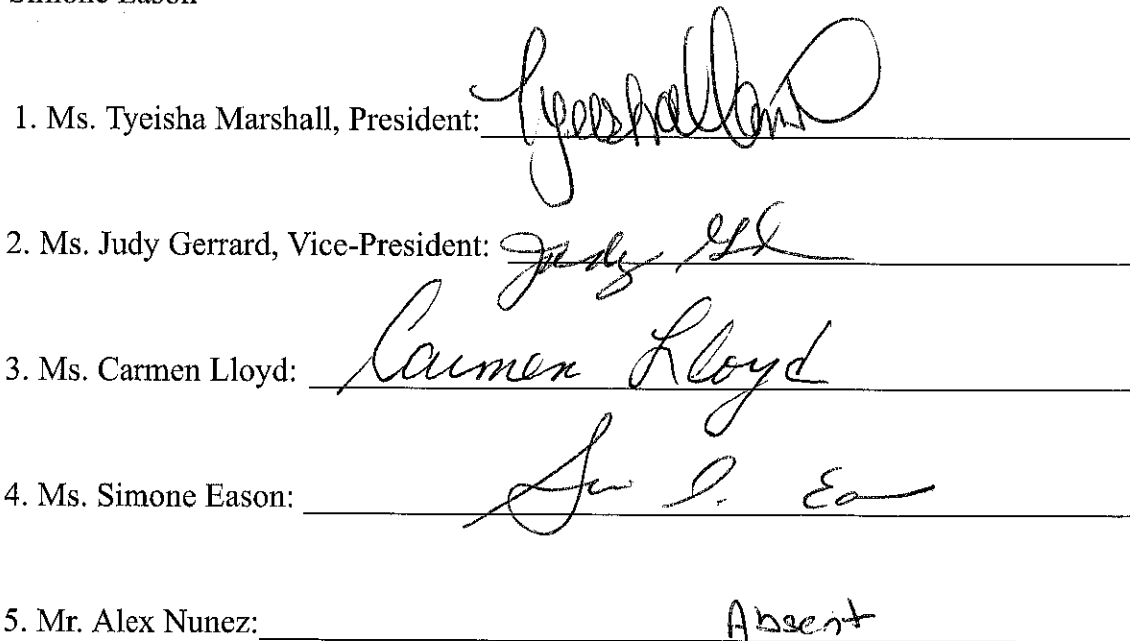 Simone Eason
1. Ms. Tyeisha Marshall, President:
2. Ms. Judy Gerrard, Vice-President: Judy
3. Ms. Carmen Lloyd: Carmen Lloyd
4. Ms. Simone Eason:
5. Mr. Alex Nunez: Absent